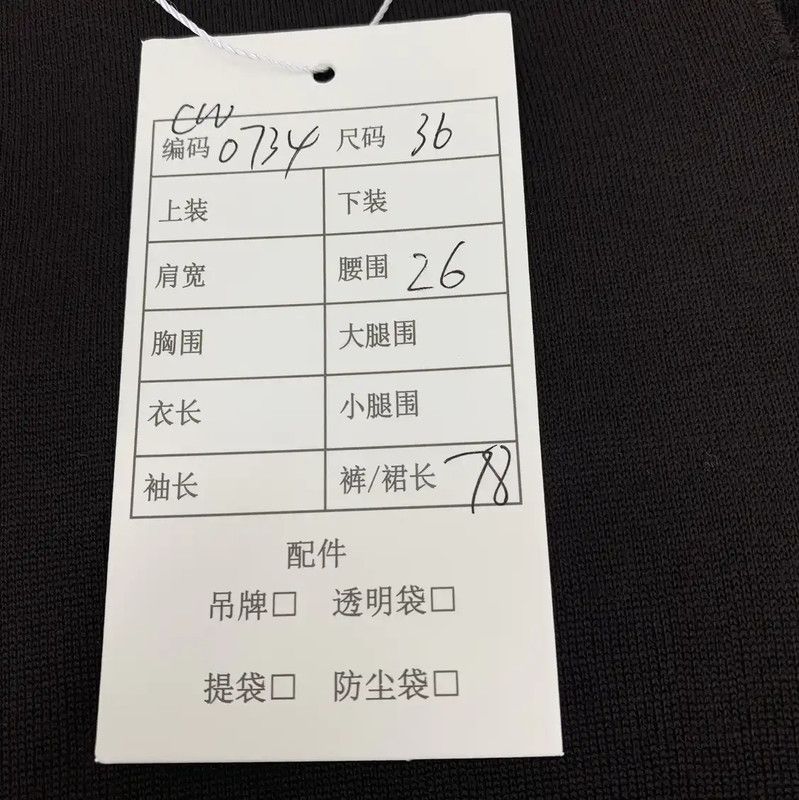 CW
编码 0734 尺码 36
上装 下装
肩宽 腰围 26
胸围 大腿围
衣长 小腿围
袖长 裤/裙长 78
配件
吊牌□ 透明袋□
提袋□ 防尘袋□